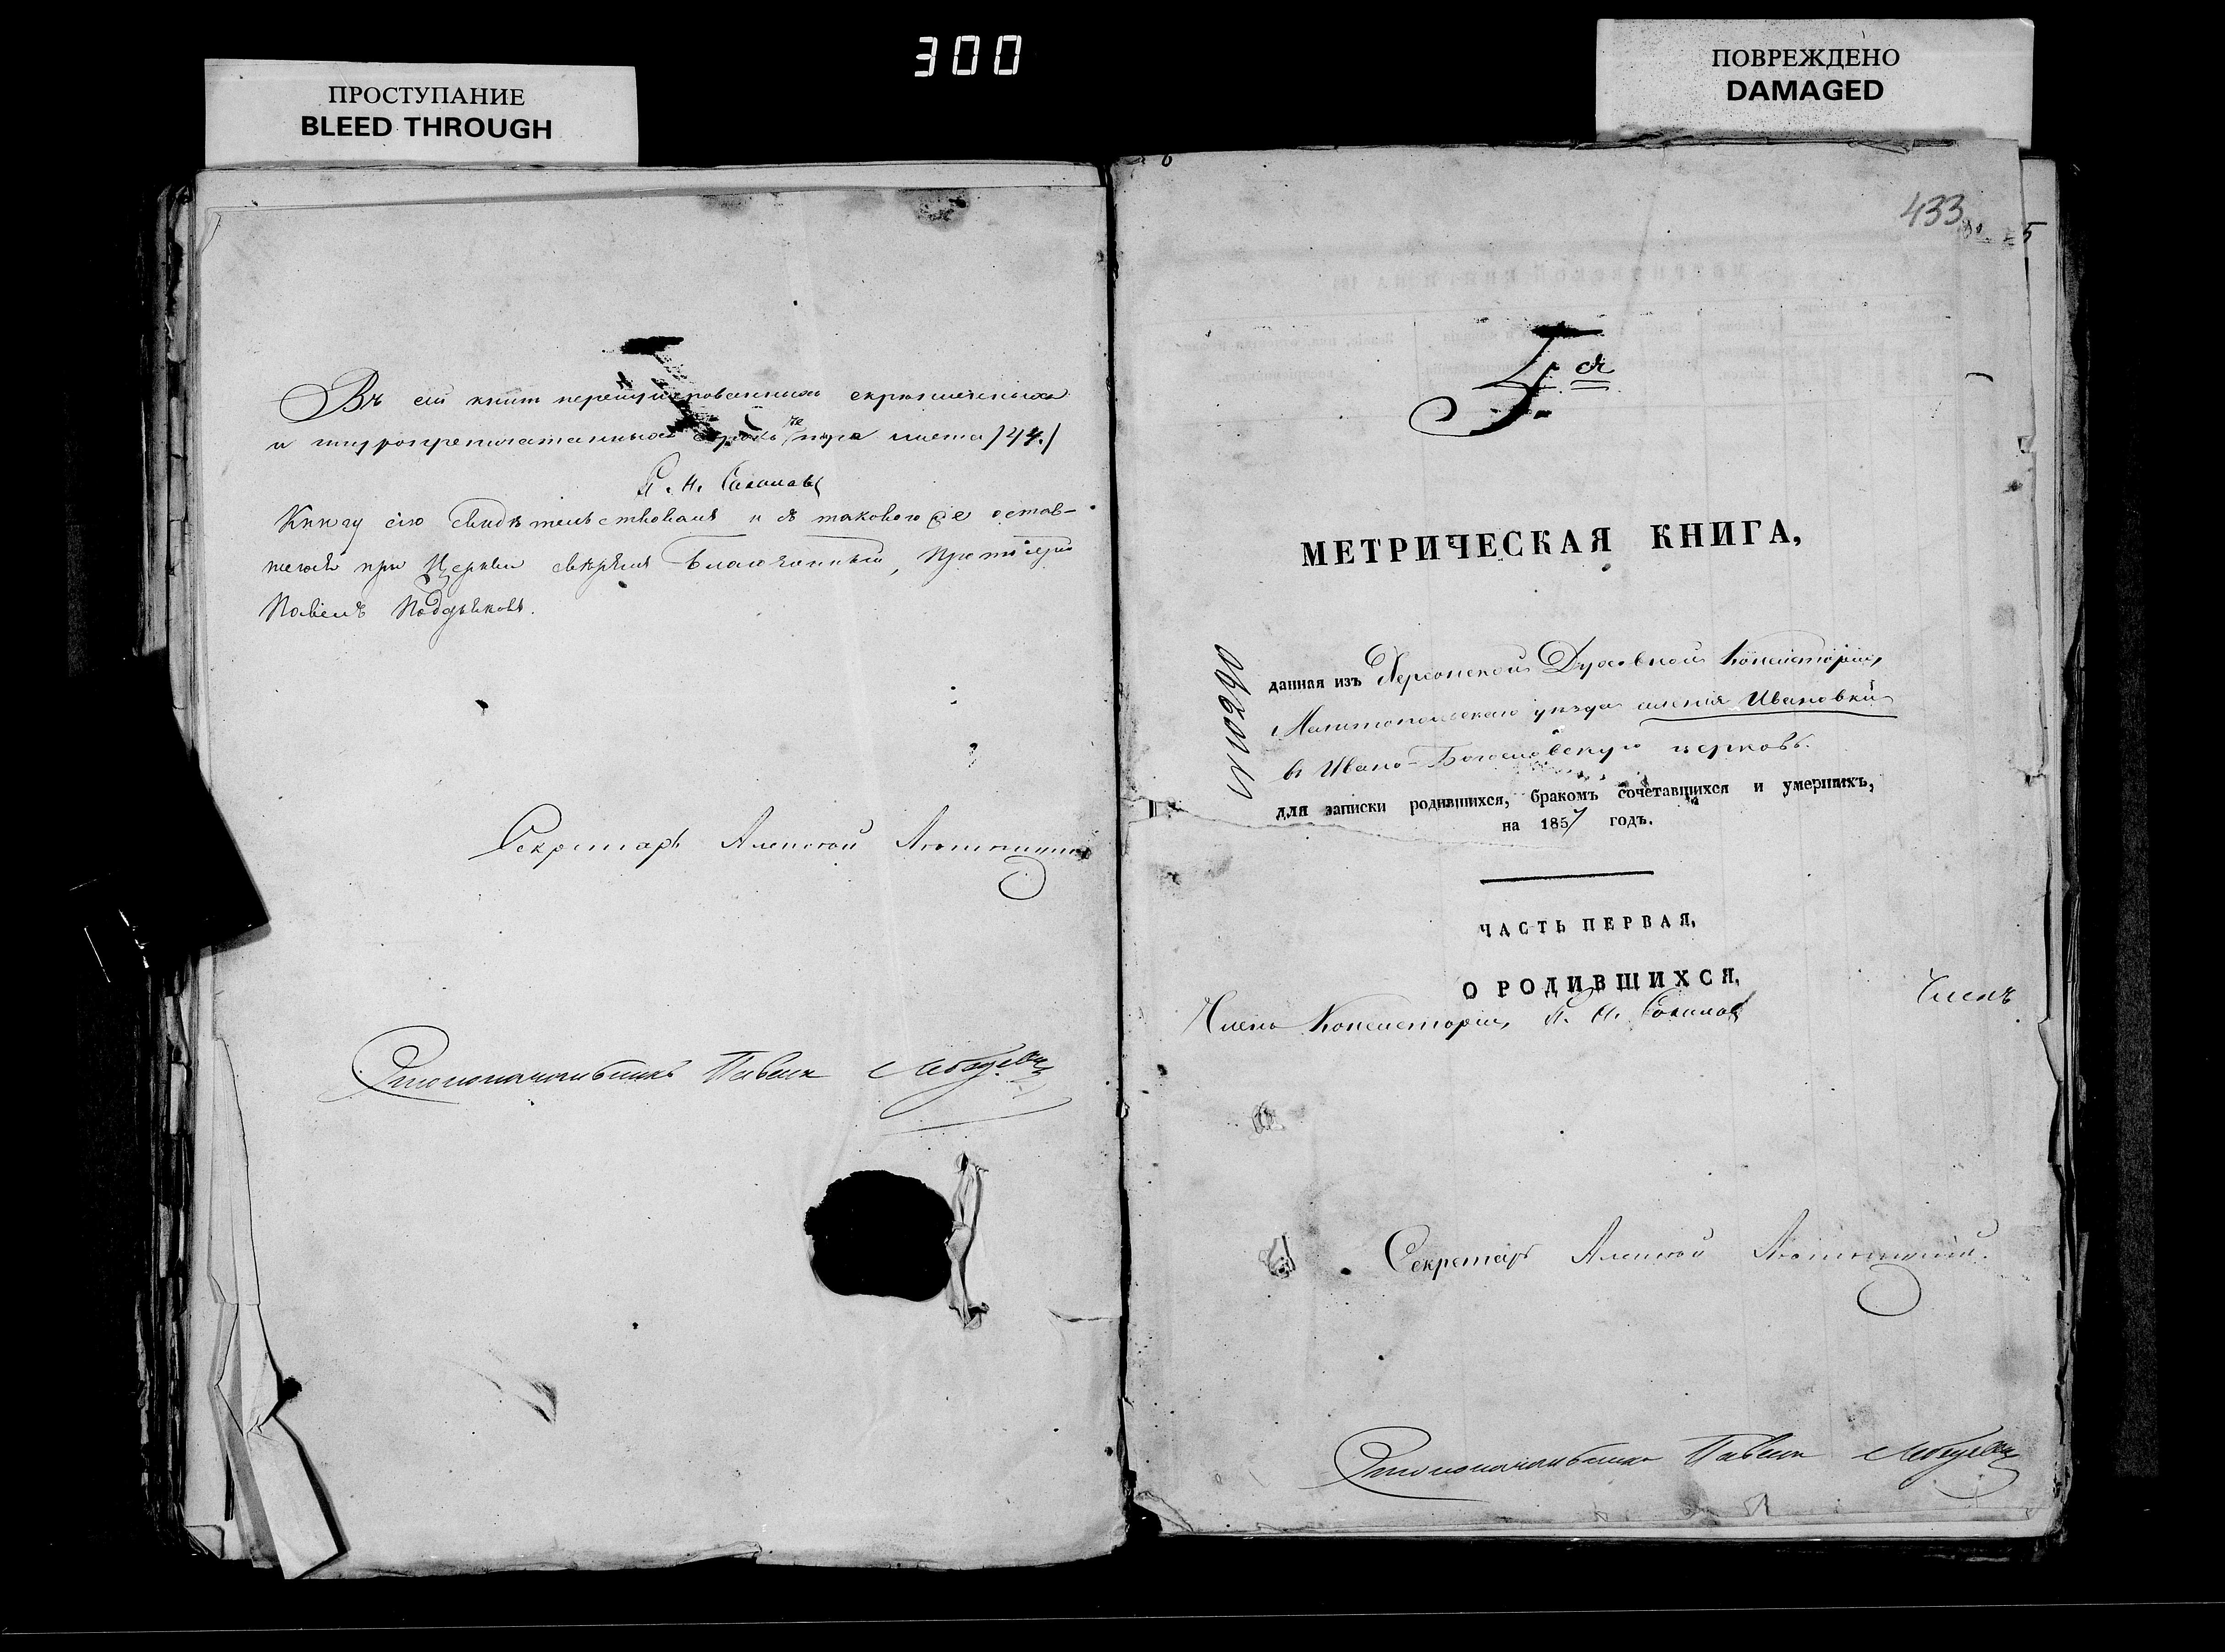 300
ПРОСТУПАНИЕ
BLEED THROUGH
ПОВРЕЖДЕНО
DAMAGED
Въ сей книге перенумерованныхъ скрѣпленныхъ
и шнуропрепечатанныхъ листа /44./
Книгу сію свидѣтельствовалъ и съ таковою же остав-
шеюся при Церкви свѣрялъ Благочинный, Протоіерей
Павелъ
Секретарь Алексѣй
Столоначальникъ Павелъ
433
5
МЕТРИЧЕСКАЯ КНИГА,
№ 10290
данная изъ Херсонской Духовной Консисторіи,
Мелитопольскаго уѣзда селенія Ивановки
въ Ивано-Богословскую церковь.
для записки родившихся, бракомъ сочетавшихся и умершихъ,
на 1857 годъ.
ЧАСТЬ ПЕРВАЯ,
О РОДИВШИХСЯ,
Членъ
Членъ Консисторіи,
Секретарь Алексѣй
Столоначальникъ Павелъ